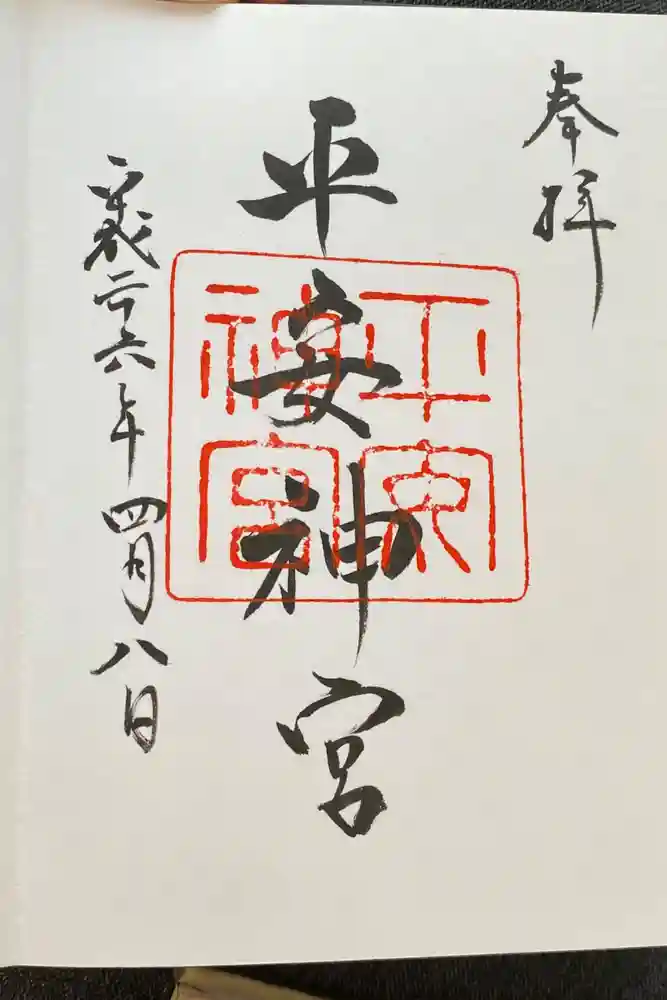 奉拝
平安神宮
平安神宮
平成二十六年四月八日